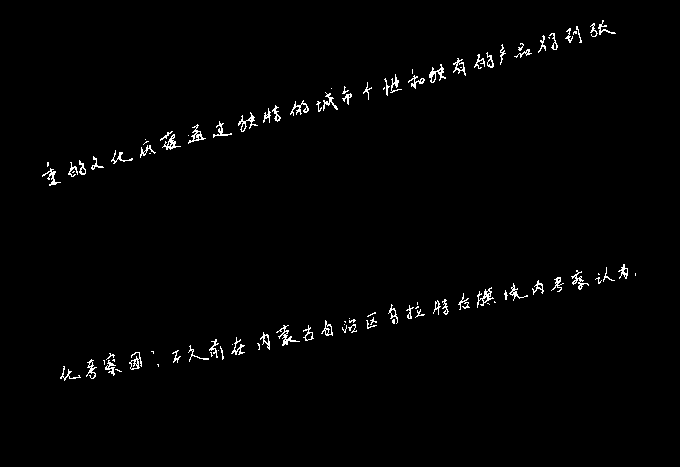 重的文化底蕴通过独特的城市个性和独有的产品得到张
化考察团",不久前在内蒙古自治区乌拉特后旗境内考察认为,